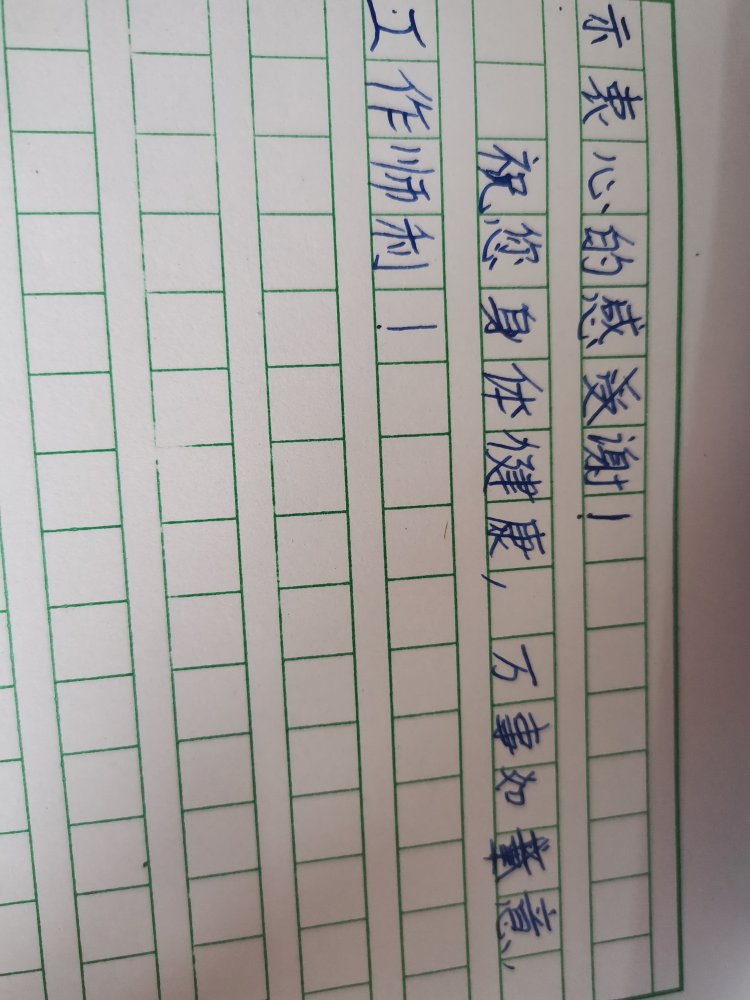 示衷心的感谢！
祝您身体健康，万事如意，
工作师利！